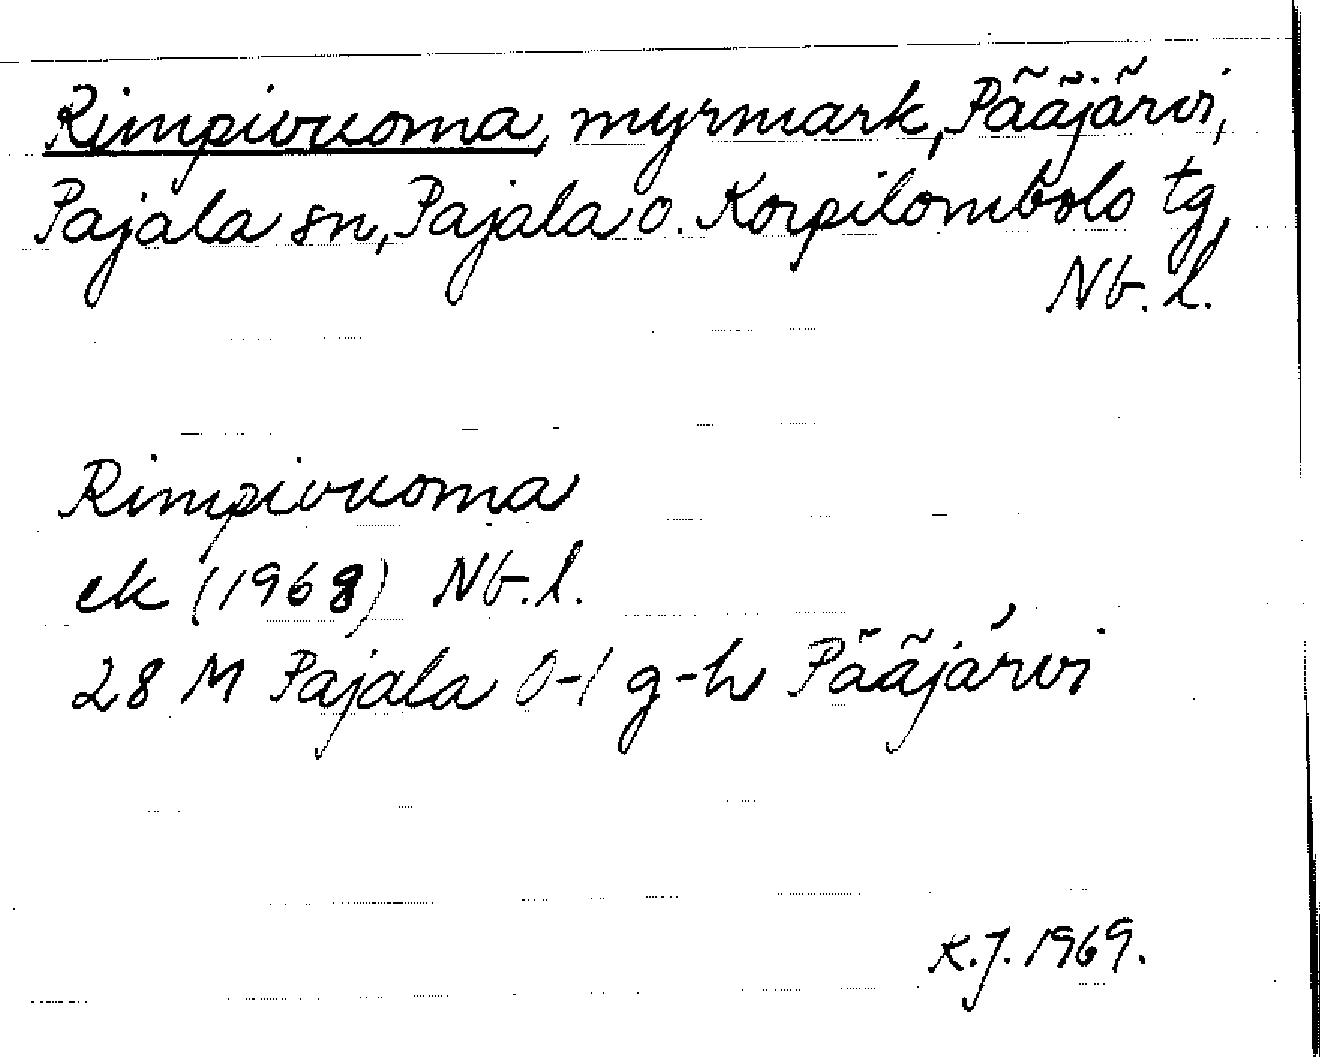 Rimpivuoma, myrmark, Pääjärvi,
Pajala sn, Pajala o. Korpilombolo tg,
Nb. l.
Rimpivuoma
ek (1968) Nb. l.
28 M Pajala 0-1 g-h Pääjärvi
K.J. 1969.